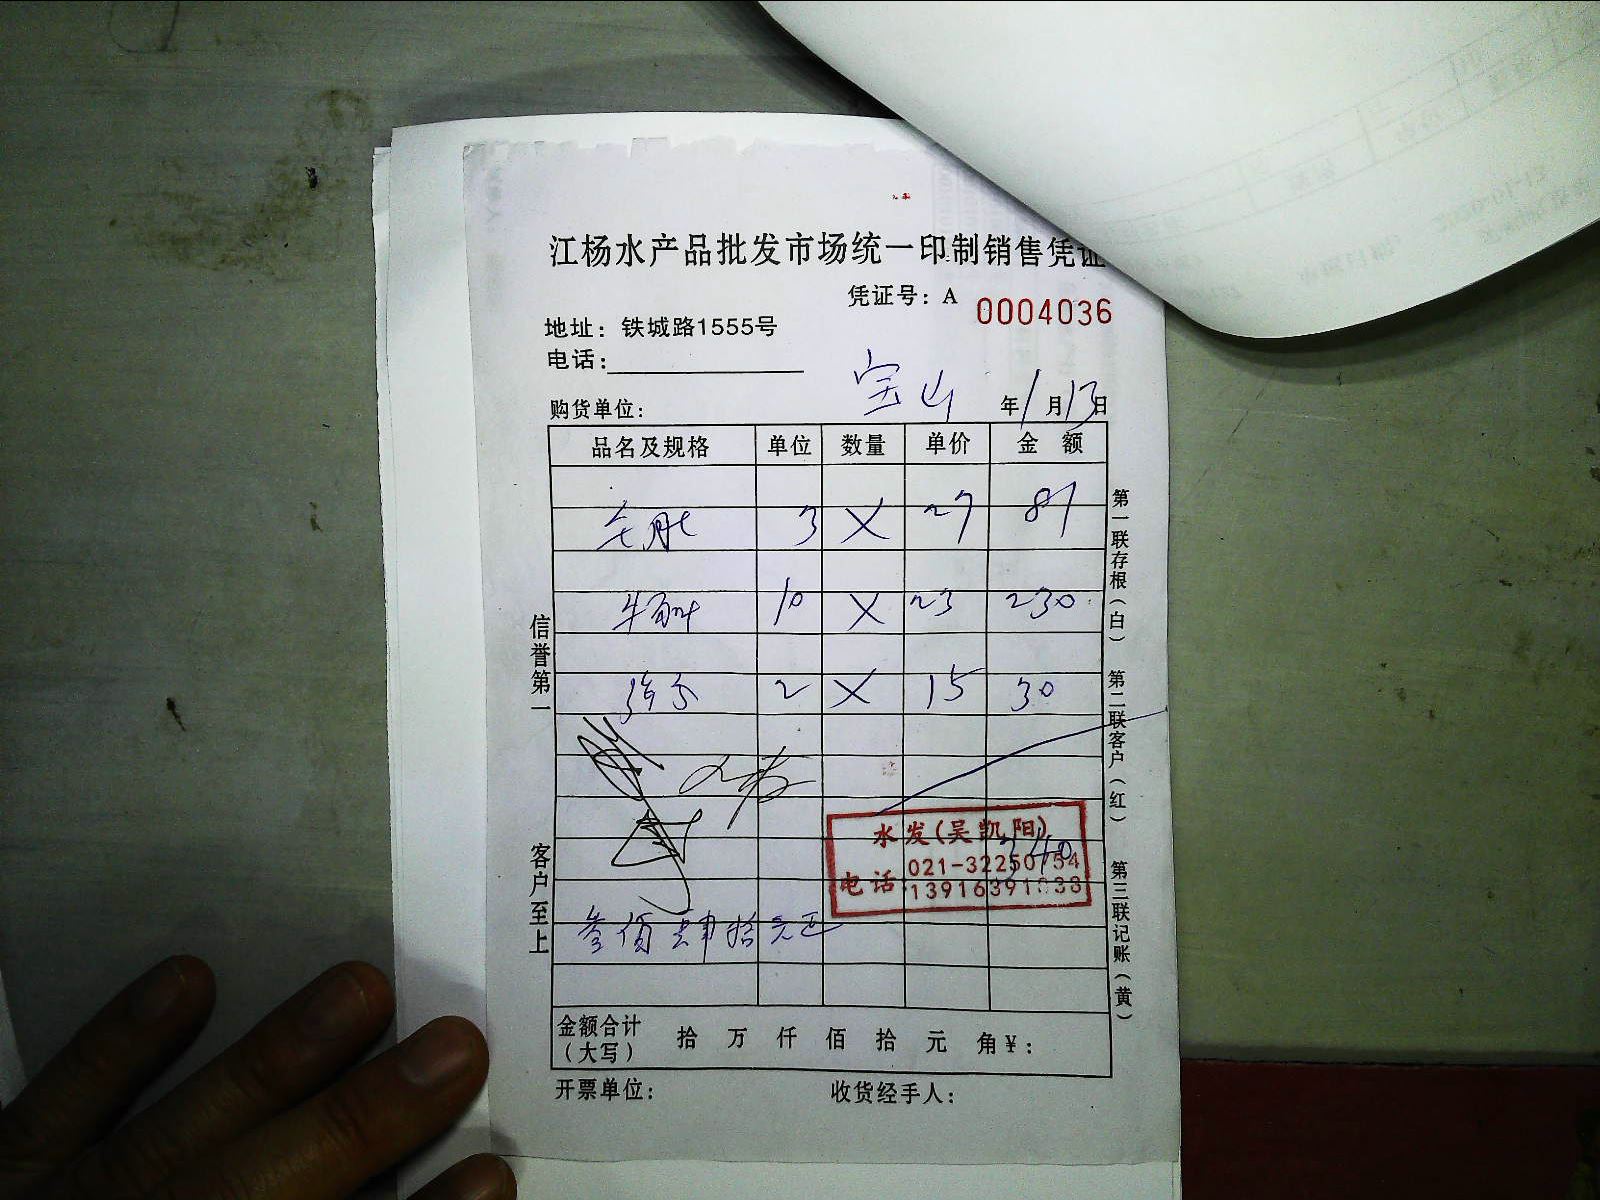 江杨水产品批发市场统一印制销售凭证
凭证号：A 0004036
地址：铁城路1555号
电话：
宝山
购货单位： 年1月13日
品名及规格 单位 数量 单价 金 额
3 X 27 81
10 X 23 230
2 X 15 30
340
水发(吴凯阳)
电话 021-32250754
叁佰肆拾元正
金额合计（大写） 拾 万 仟 佰 拾 元 角¥：
开票单位： 收货经手人：
信誉第一
客户至上
第一联存根（白）
第二联客户（红）
第三联记账（黄）